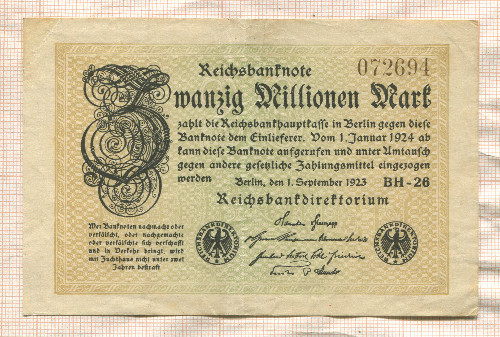 Reichsbanknote
072694
Zwanzig Millionen Mark
zahlt die Reichsbankhauptkasse in Berlin gegen diese
Banknote dem Einlieferer. Vom 1. Januar 1924 ab
kann diese Banknote aufgerufen und unter Umtausch
gegen andere gesetzliche Zahlungsmittel eingezogen
werden
Berlin, den 1. September 1923
BH-26
Reichsbankdirektorium
Wer Banknoten nachmacht oder
verfälscht, oder nachgemachte
oder verfälschte sich verschafft
und in Verkehr bringt, wird
mit Zuchthaus nicht unter zwei
Jahren bestraft
REICHSBANKDIREKTORIUM
REICHSBANKDIREKTORIUM